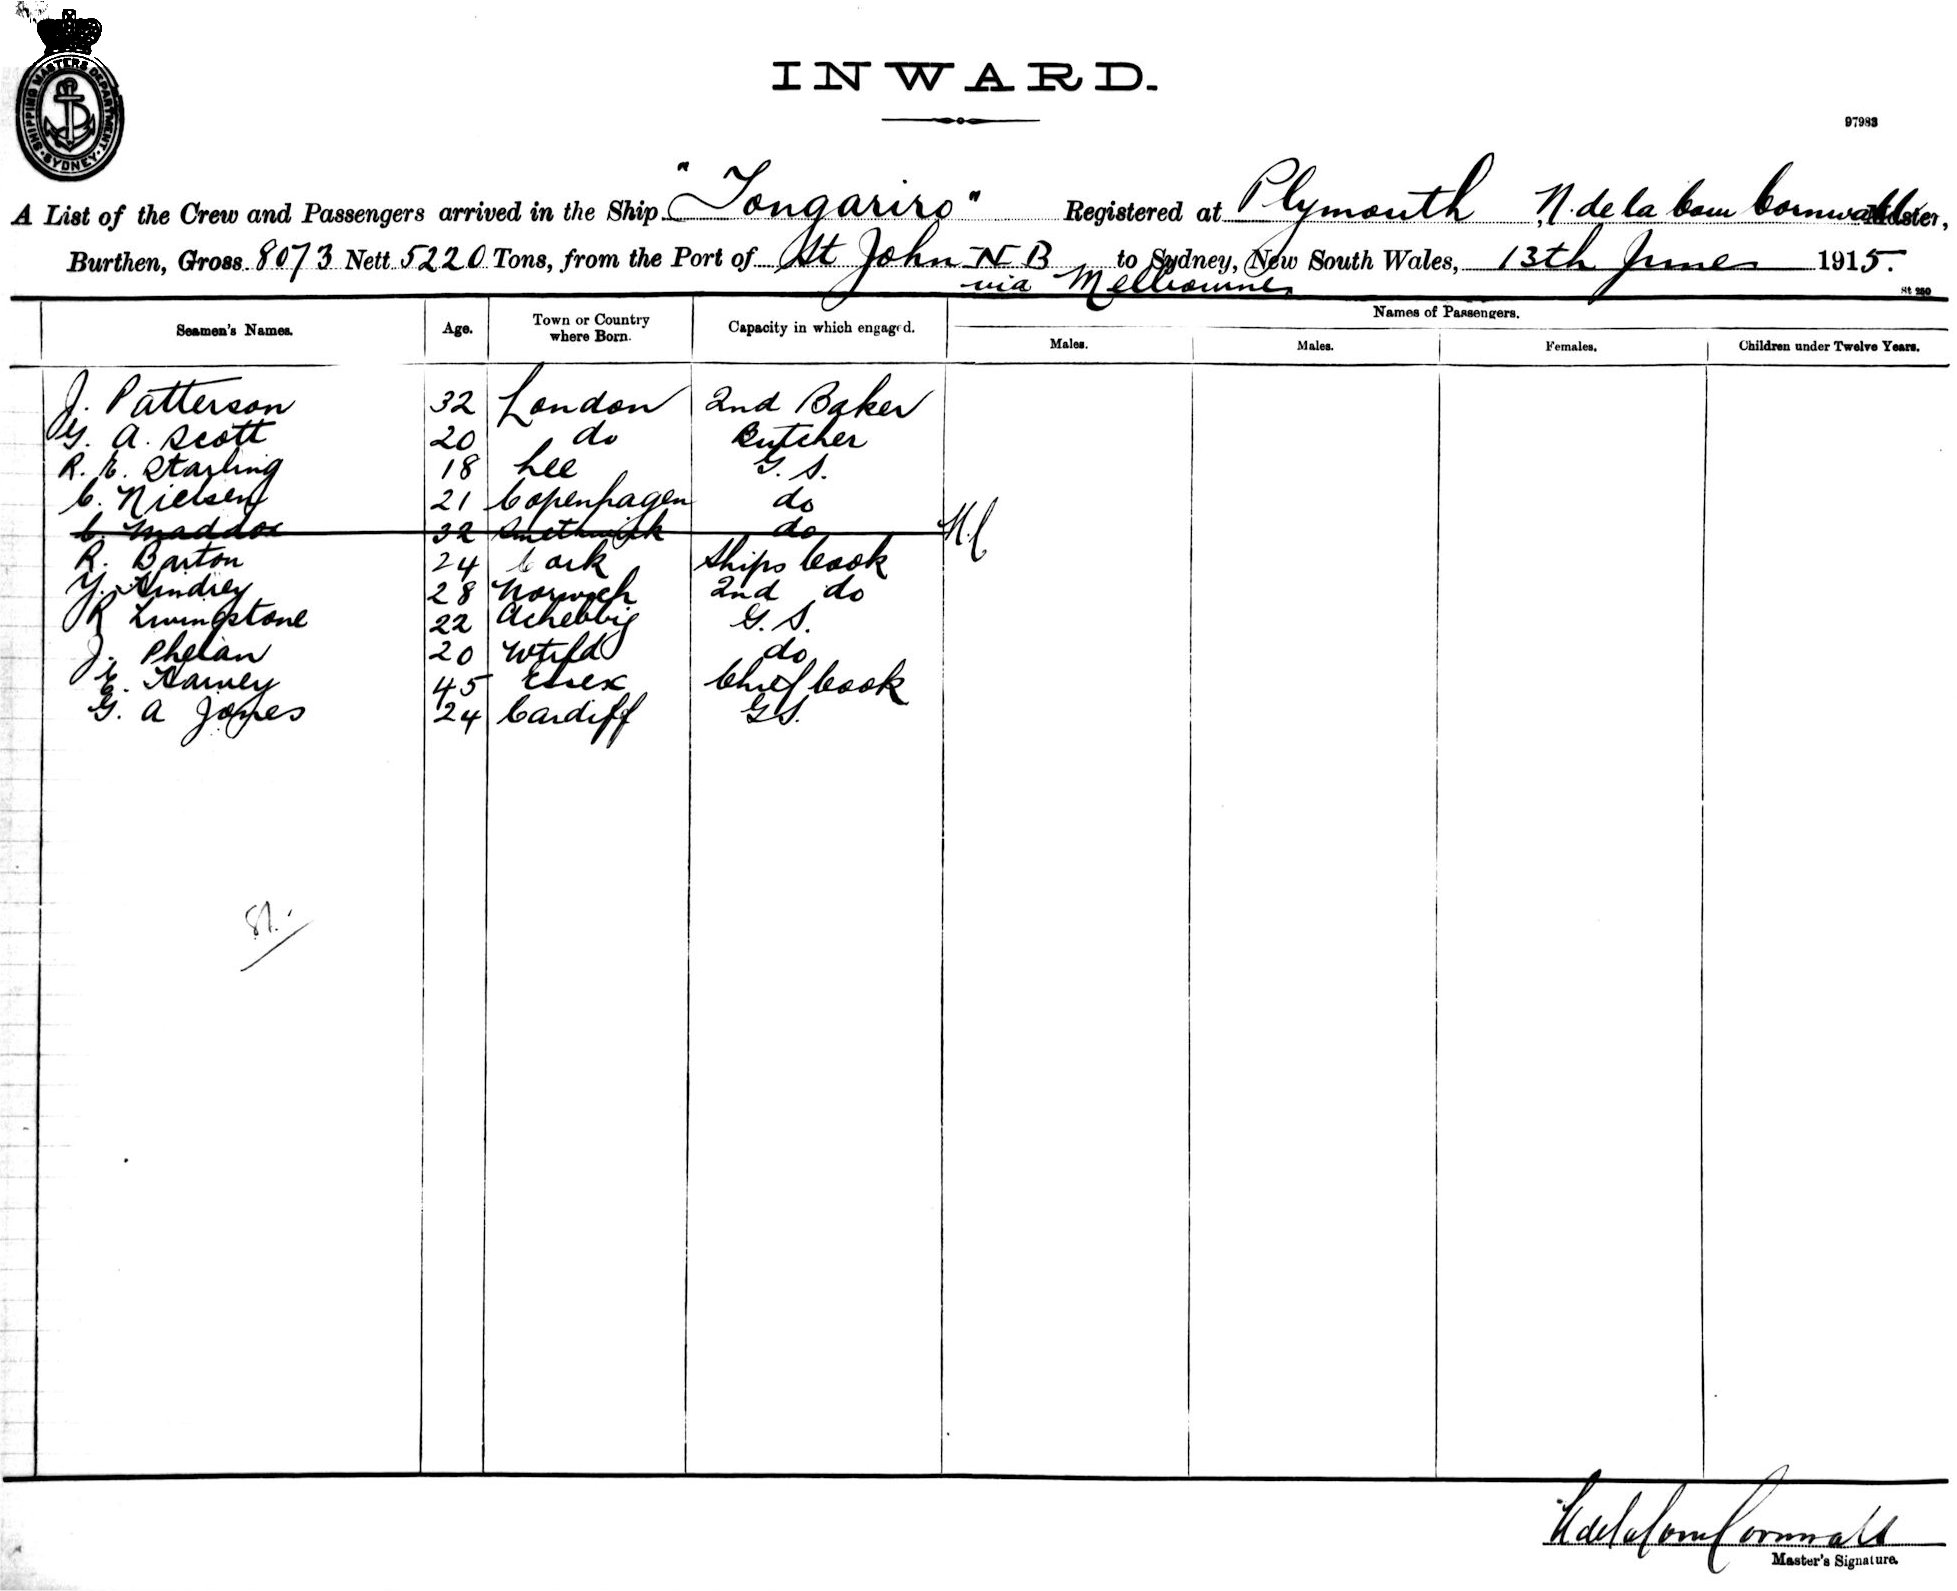 SHIPPING MASTERS DEPARTMENT. SYDNEY
INWARD.
97983
A List of the Crew and Passengers arrived in the Ship "Tongariro" Registered at Plymouth N. de la Cour Cornwall Master,
Burthen, Gross 8073 Nett 5220 Tons, from the Port of St John N B to Sydney, New South Wales, 13th June 1915.
via Melbourne
St 250
Seamen's Names. Age. Town or Country where Born. Capacity in which engaged. Names of Passengers.
Males. Males. Females. Children under Twelve Years.
J. Patterson 32 London 2nd Baker
G. A. Scott 20 do Butcher
R. E. Starling 18 Lee G. S.
C. Nielsen 21 Copenhagen do
C. Maddox 32 Smethwick do
R. Barton 24 Cork Ships Cook
Y. Hindrey 28 Norwich 2nd do
R Livingstone 22 G. S.
J. Phelan 20 Wtfld do
E. Harvey 45 Essex Chief Cook
G. A Jones 24 Cardiff GS.
81.
N de la Cour Cornwall
Master's Signature.